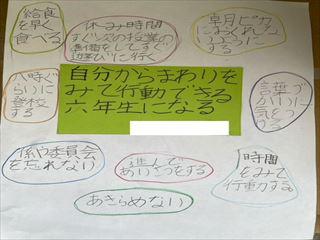 給食
を早く
食べる
休み時間
すぐ次の授業の
準備をしてすぐ
遊びに行く
朝ピカ
におくれない
ようにする
自分からまわりを
みて行動できる
六年生になる
八時ぐ
らいに
登校
する
言葉づ
かいに
気をつ
ける
係や委員会
を忘れない
進んで
あいさつをする
時間
をみて
行動する
あきらめない